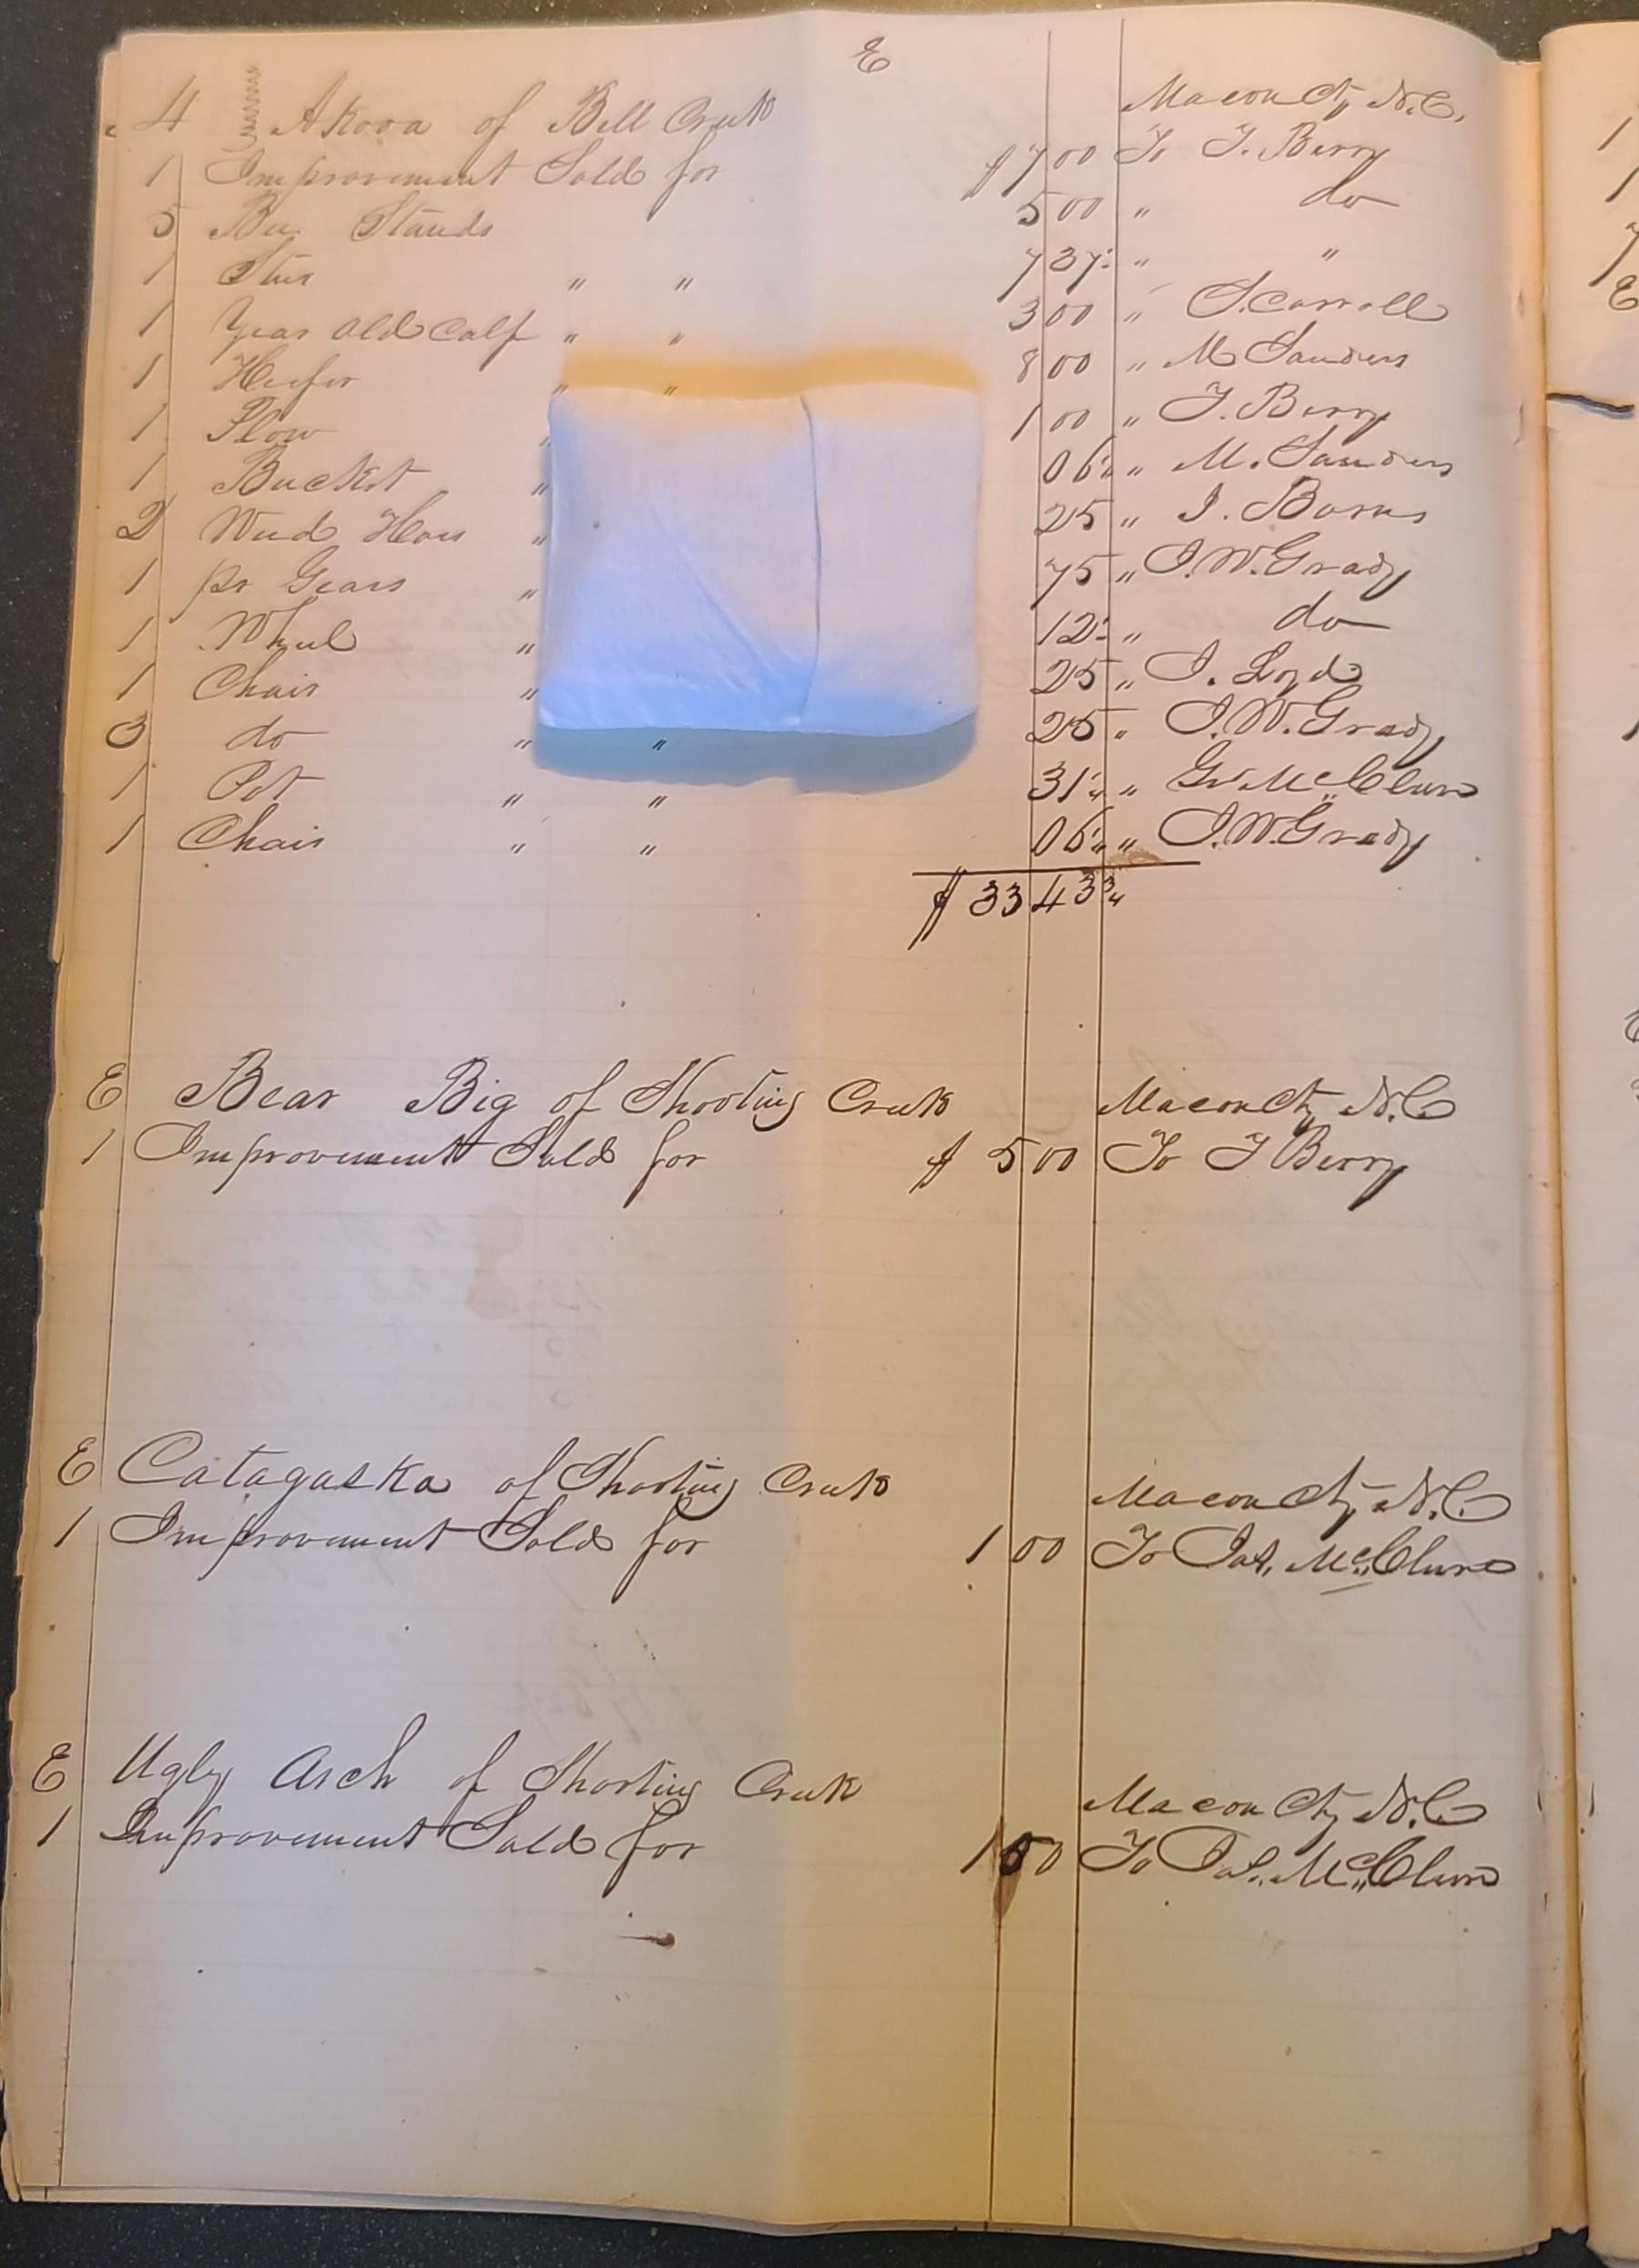 E
4 Akooa of Bell Creek Macon Cty N.C.
1 Improvement Sold for $ 7 00 To J. Berry
5 Bee Stands 5 00 " do
1 Stur " " 7 37 " "
1 Year Old Calf " " 3 00 " S. Carroll
1 Heifer " " 8 00 " M Sanders
1 Plow " 1 00 " J. Berry
1 Bucket " 06 " M. Sanders
2 Weed Hoes " 25 " I. Barns
1 pr Gears " 75 " J. W. Grady
1 Wheel " 12 " do
1 Chair " 25 " J. Loyd
3 do " " 25 " J. W. Grady
1 Pot " " 31 1/4 " McClure
1 Chair " " 06 1/4 " J. W. Grady
$ 33 43 3/4
E Bear Big of Shooting Creek Macon Cty N.C
1 Improvement Sold for $ 5 00 To J Berry
E Catagaska of Shooting Creek Macon Cty N.C
1 Improvement Sold for 1 00 To Jas. McClure
E Ugly Arch of Shooting Creek Macon Cty N.C
1 Improvement Sold for 1 50 To Jas. McClure